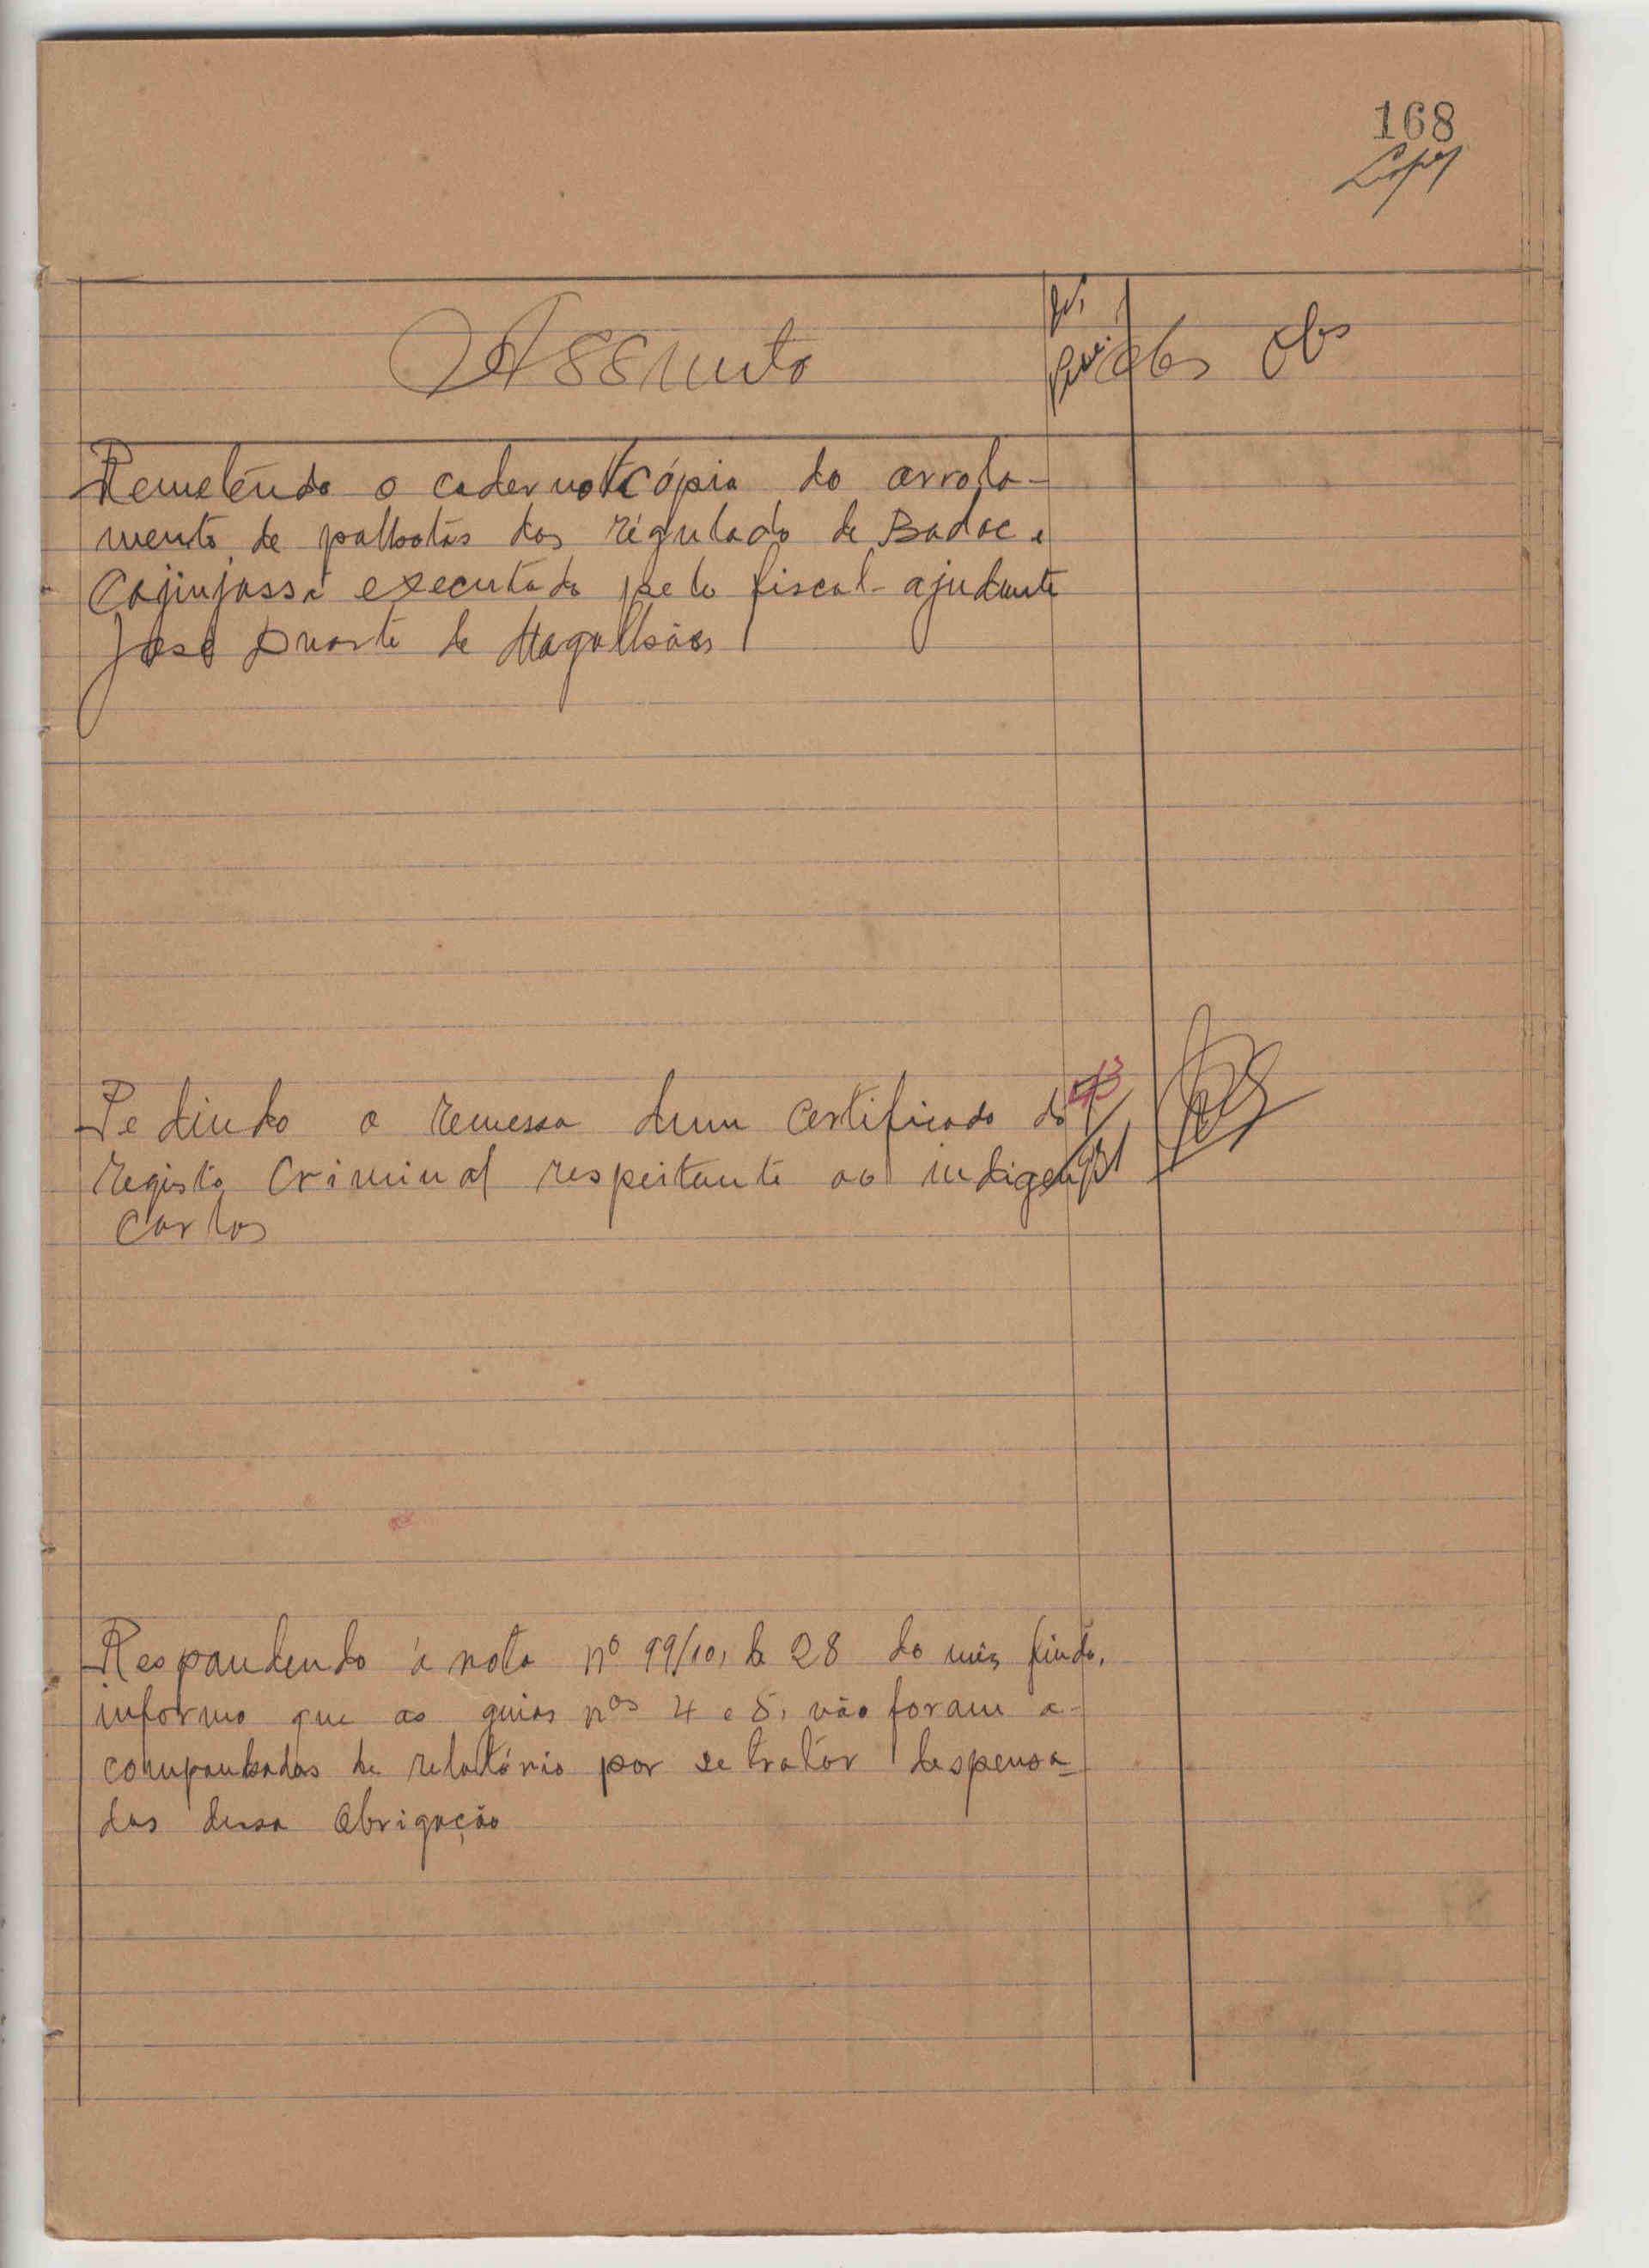 168
Lopes
Assunto
obs Obs
Remetendo o caderno cópia do arrola-
mento de palhotas dos régulado de Badoc e
Cajinjassá executado pelo fiscal-ajudante
José Duarte de Magalhães
Pedindo a remessa dum certificado do
registo criminal respeitante ao indigena
Carlos
Respondendo á nota nº 99/10, de 28 do mês findo,
informo que as guias nºs 4 e 5, não foram a-
companhadas de relatório por se tratar despensa-
das dessa obrigação